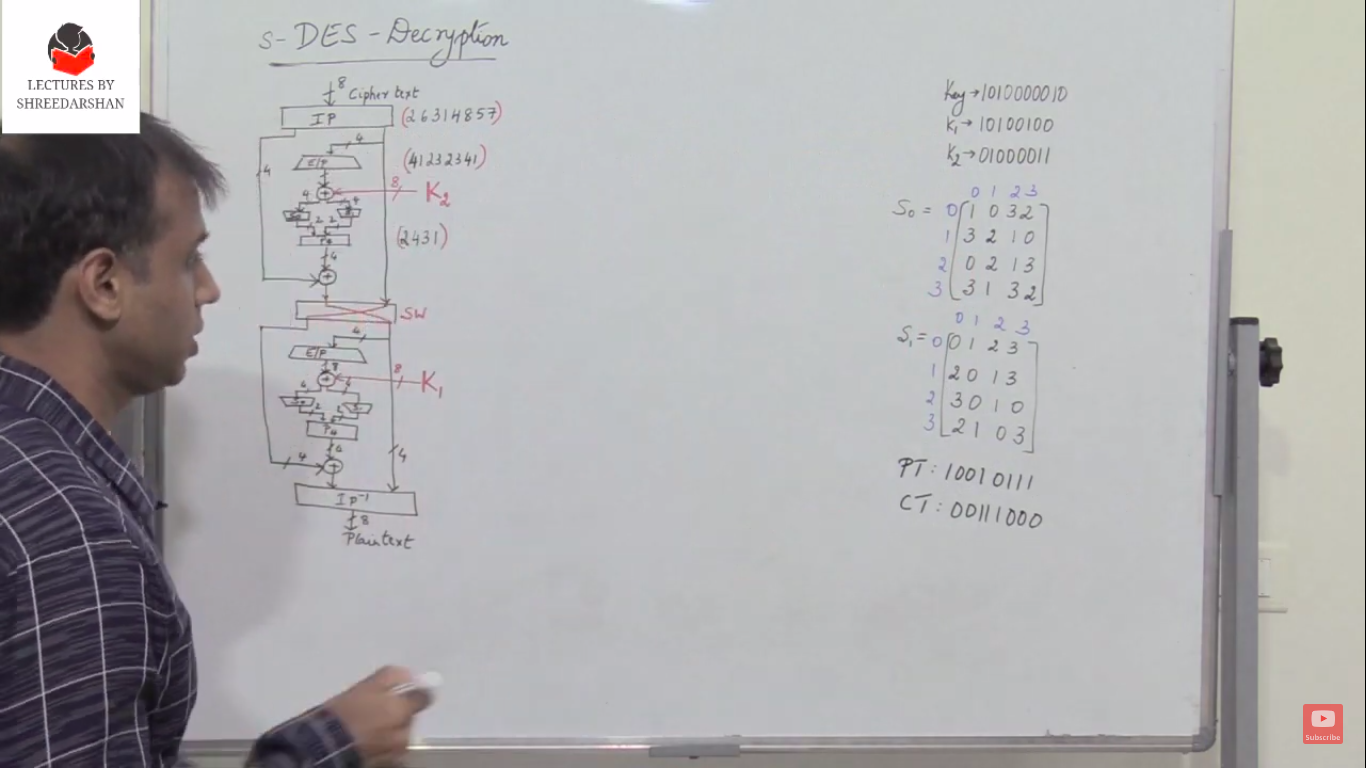 LECTURES BY
SHREEDARSHAN
S-DES-Decryption
8 Cipher text
IP (26314857)
4
E/P (41232341)
4
8 K2
4 4
2 2
P4 (2431)
4
SW
4
E/P
8
8 K1
4
2 2
P4
4
4
4
IP-1
8
Plaintext
Key→1010000010
K1→10100100
K2→01000011
0 1 2 3
S0= 0 1 0 3 2
1 3 2 1 0
2 0 2 1 3
3 3 1 3 2
0 1 2 3
S1= 0 0 1 2 3
1 2 0 1 3
2 3 0 1 0
3 2 1 0 3
PT: 10010111
CT: 00111000
Subscribe